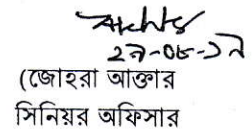 ২৯-০৮-১৯
(জোহরা আক্তার
সিনিয়র অফিসার